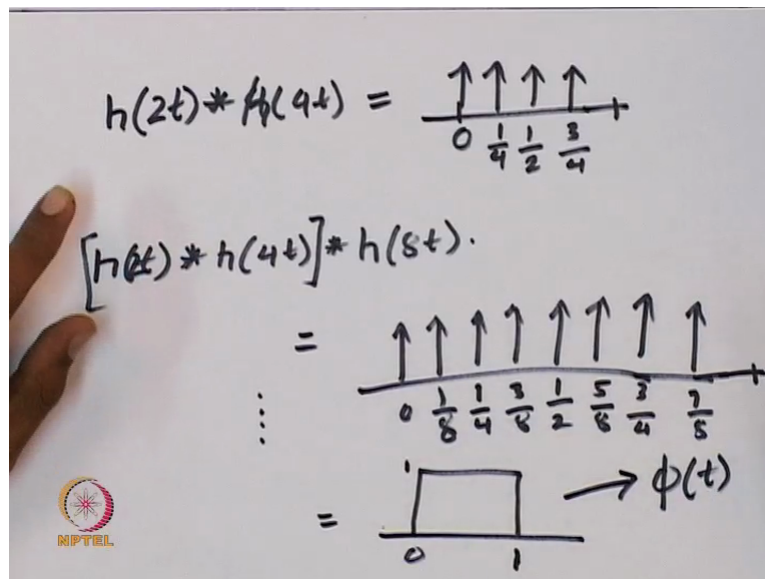 h(2t) * h(4t) =
0 1/4 1/2 3/4
[h(2t) * h(4t)] * h(8t).
=
0 1/8 1/4 3/8 1/2 5/8 3/4 7/8
= 1 → φ(t)
0 1
NPTEL